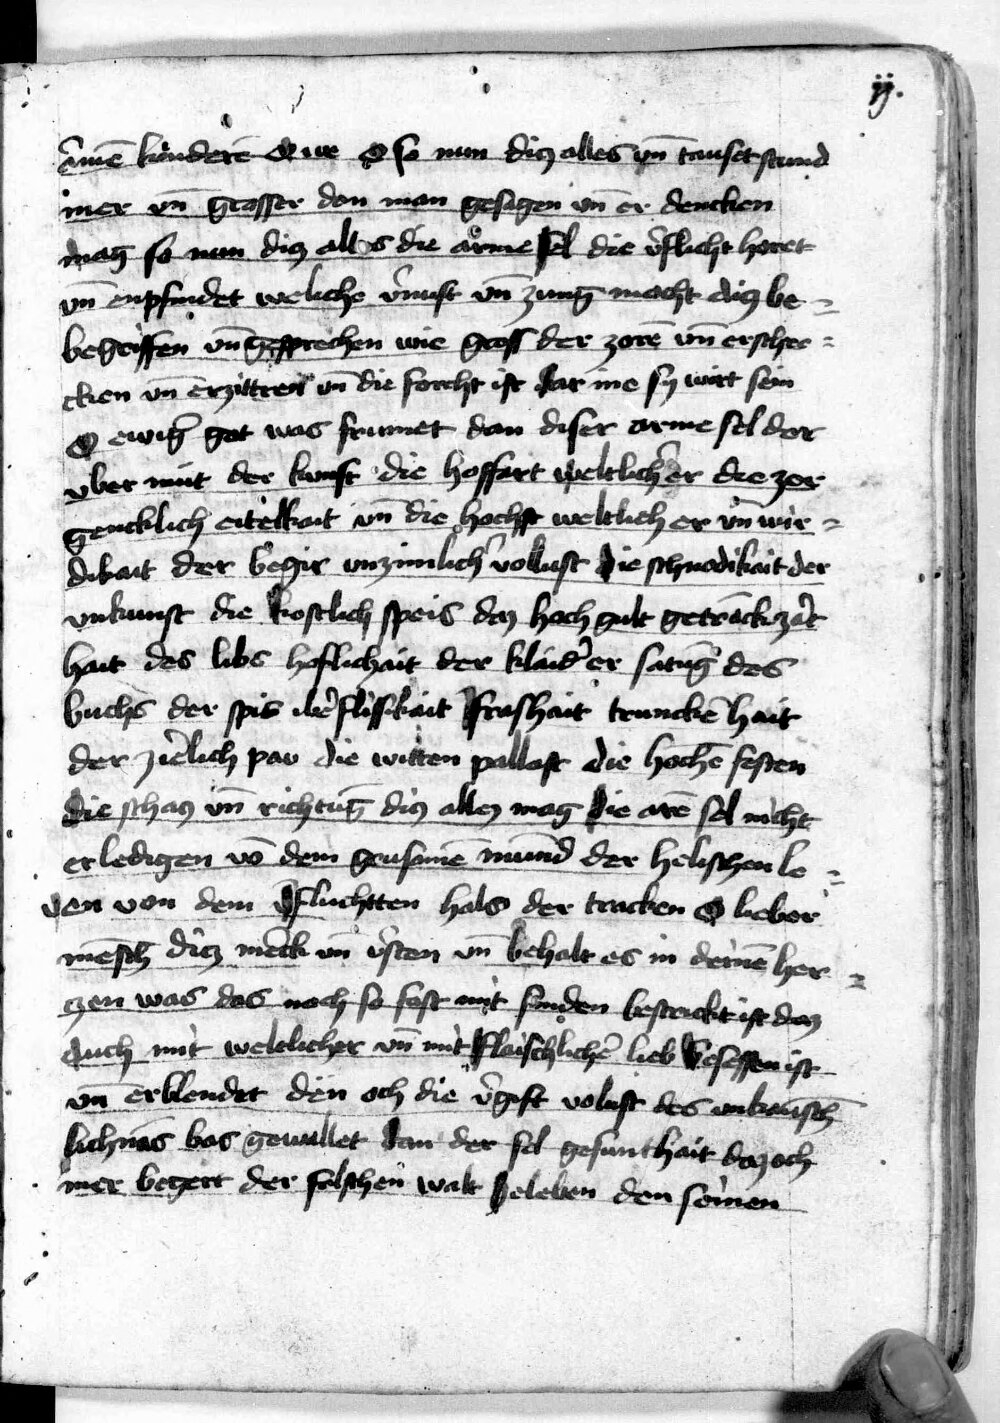 ij.
kindere O we O so nun diz alles vn̄ tausetstund
mer vn̄ grosser dan man gesagen vn̄ er dencken
mag so nun diz alles die arme sel die v̾flicht horet
vn̄ enpfindet weliche v̾nuft vn̄ zung macht diz be=
begriffen vn̄ gesprechen wie gross der zorē vn̄ erschre=
cken vn̄ erzittren vn̄ die forcht ist dar īne sy wirt sein
O ewig̾ got was frumet dan diser arme sel der
vber mut der kunst die hoffart weltlich̾ er die zer
gencklich eitelkait vn̄ die hochst weltlich er vn̄ wir=
dikait der begir vnzimlich̾ vollust die schnodikait der
vnkunst die kostlich speis daz hoch gult getranck zart
hait des libs hoflichait der klaid̾ er satūg des
buchs der spis vbe̾flissikait frashait trunckēhait
der zierlich pav die witten pallast die hochē festen
die schaz vn̄ richtūg diz allez mag die arē sel nicht
erledigen vō dem grusamē mund der helischen le=
wen von dem v̾fluchtten hals der tracken O lieber
mēsch diz merck vn̄ v̾sten vn̄ behalt es in deinē her=
czen was das noch so fast mit sunden bestrickt ist daz
auch mit weltlicher vn̄ mit flaischlichē lieb besessen ist
vn̄ erblendet den och die v̾gift volust des vnkeusch
bas geuallet dan der sel gesunthait daz och
mer begert der falschen walt leben den